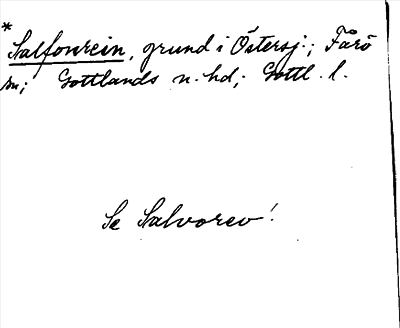 * Salfourein, grund i Östersj.; Fårö
sn; Gottlands n. hd; Gottl. l.
Se Salvorev!